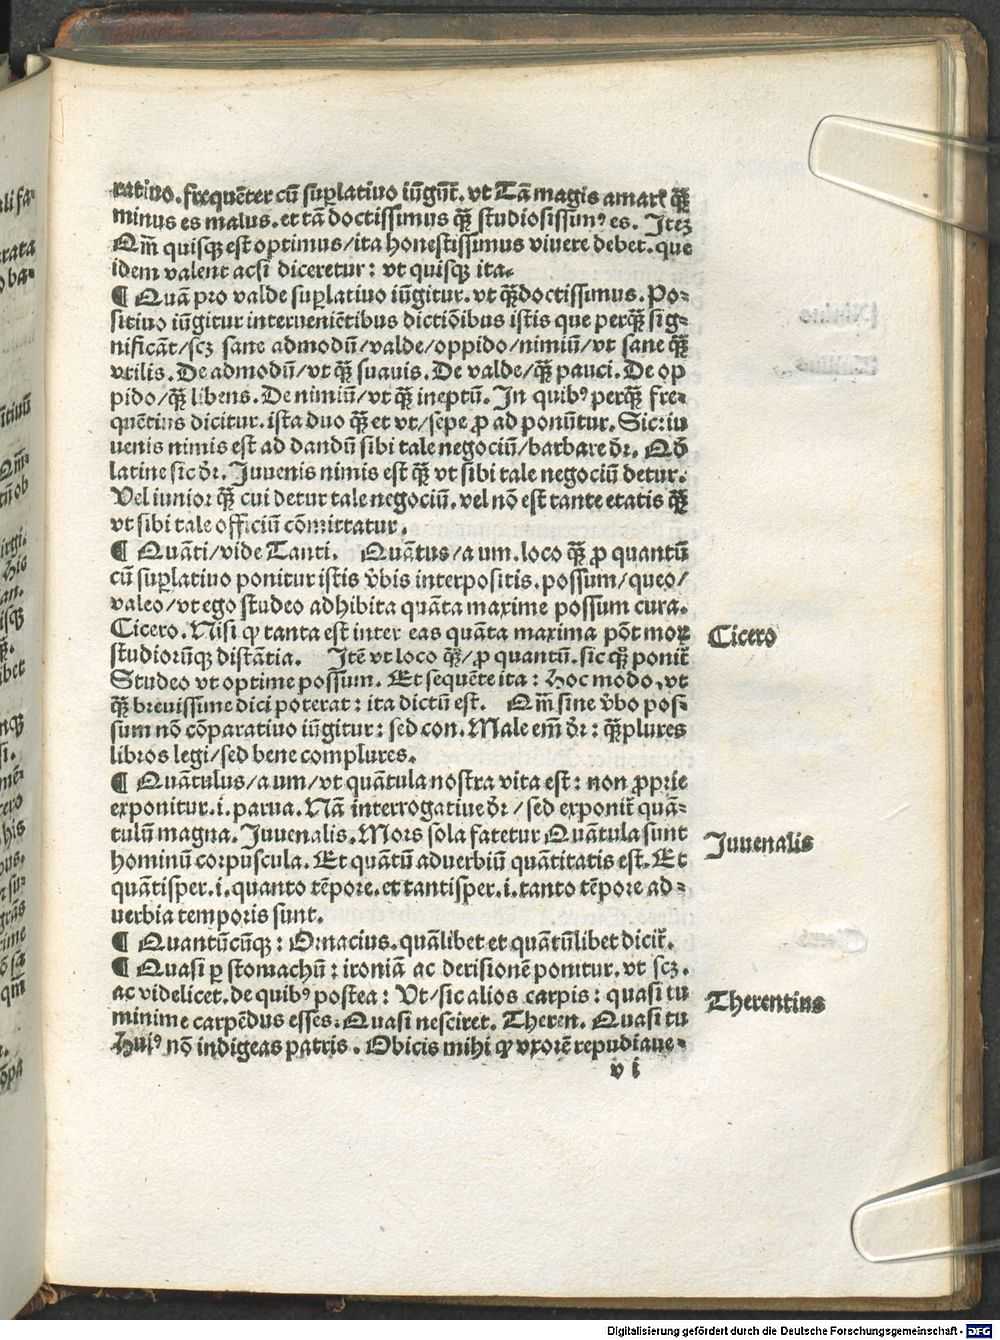 ratiuo. frequēter cū suꝑlatiuo iūgūt̄. vt Tā magis amarꝭ q̄ꝫ
minus es malus. et tā doctissimus q̄ꝫ studiosissimꝰ es. Iteꝫ
Qm̄ quisqꝫ est optimus/ita honestissimus viuere debet. que
idem valent acsi diceretur: vt quisqꝫ ita.
¶ Quā pro valde suꝑlatiuo iūgitur. vt q̄ꝫdoctissimus. Po⸗
sitiuo iūgitur interueniētibus dictiōibus istis que perq̄ꝫ sig⸗
nificāt/scꝫ sane admodū/valde/oppido/nimiū/vt sane q̄ꝫ
vtilis. De admodū/vt q̄ꝫ suauis. De valde/q̄ꝫ pauci. De op
pido/q̄ꝫ libens. De nimiū/vt q̄ꝫ ineptū. In quibꝰ perq̄ꝫ fre⸗
quētius dicitur. ista duo q̄ꝫ et vt/sepe ꝓ ad ponūtur. Sic: iu
uenis nimis est ad dandū sibi tale negociū/barbare dr̄. Qd̄
latine sic dr̄. Iuuenis nimis est q̄ꝫ vt sibi tale negociū detur.
Vel iunior q̄ꝫ cui detur tale negociū. vel nō est tante etatis q̄ꝫ
vt sibi tale officiū cōmittatur.
¶ Quāti/vide Tanti. Quātus/a um. loco q̄ꝫ ꝓ quantū
cū suꝑlatiuo ponitur istis v̄bis interpositis. possum/queo/
valeo/vt ego studeo adhibita quāta maxime possum cura.
Cicero. Nisi ꝙ tanta est inter eas quāta maxima pōt moꝝ
studiorūqꝫ distātia. Itē vt loco q̄ꝫ/ꝓ quantū. sic q̄ꝫ ponit̄
Studeo vt optime possum. Et sequēte ita: Hoc modo, vt
q̄ꝫ breuissime dici poterat: ita dictū est. Qm̄ sine v̄bo pos⸗
sum nō cōparatiuo iūgitur: sed con. Male em̄ dr̄: q̄ꝫplures
libros legi/sed bene complures.
¶ Quātulus/a um/vt quātula nostra vita est: non ꝓprie
exponitur. i. parua. Nā interrogatiue dr̄/sed exponit̄ quā⸗
tulū magna. Iuuenalis. Mors sola fatetur Quātula sunt
hominū corpuscula. Et quātū aduerbiū quātitatis est. Et
quātisper. i. quanto tēpore. et tantisper. i. tanto tēpore ad⸗
uerbia temporis sunt.
¶ Quantūcūqꝫ: Ornacius. quālibet et quātūlibet dicit̄.
¶ Quasi ꝑ stomachū: ironiā ac derisionē ponitur. vt scꝫ.
ac videlicet. de quibꝰ postea: Vt/sic alios carpis: quasi tu
minime carpēdus esses. Quasi nesciret. Theren. Quasi tu
huiꝰ nō indigeas patris. Obicis mihi ꝙ vxorē repudiaue⸗
v i
Cicero
Iuuenalis
Therentius
Digitalisierung gefördert durch die Deutsche Forschungsgemeinschaft - DFG